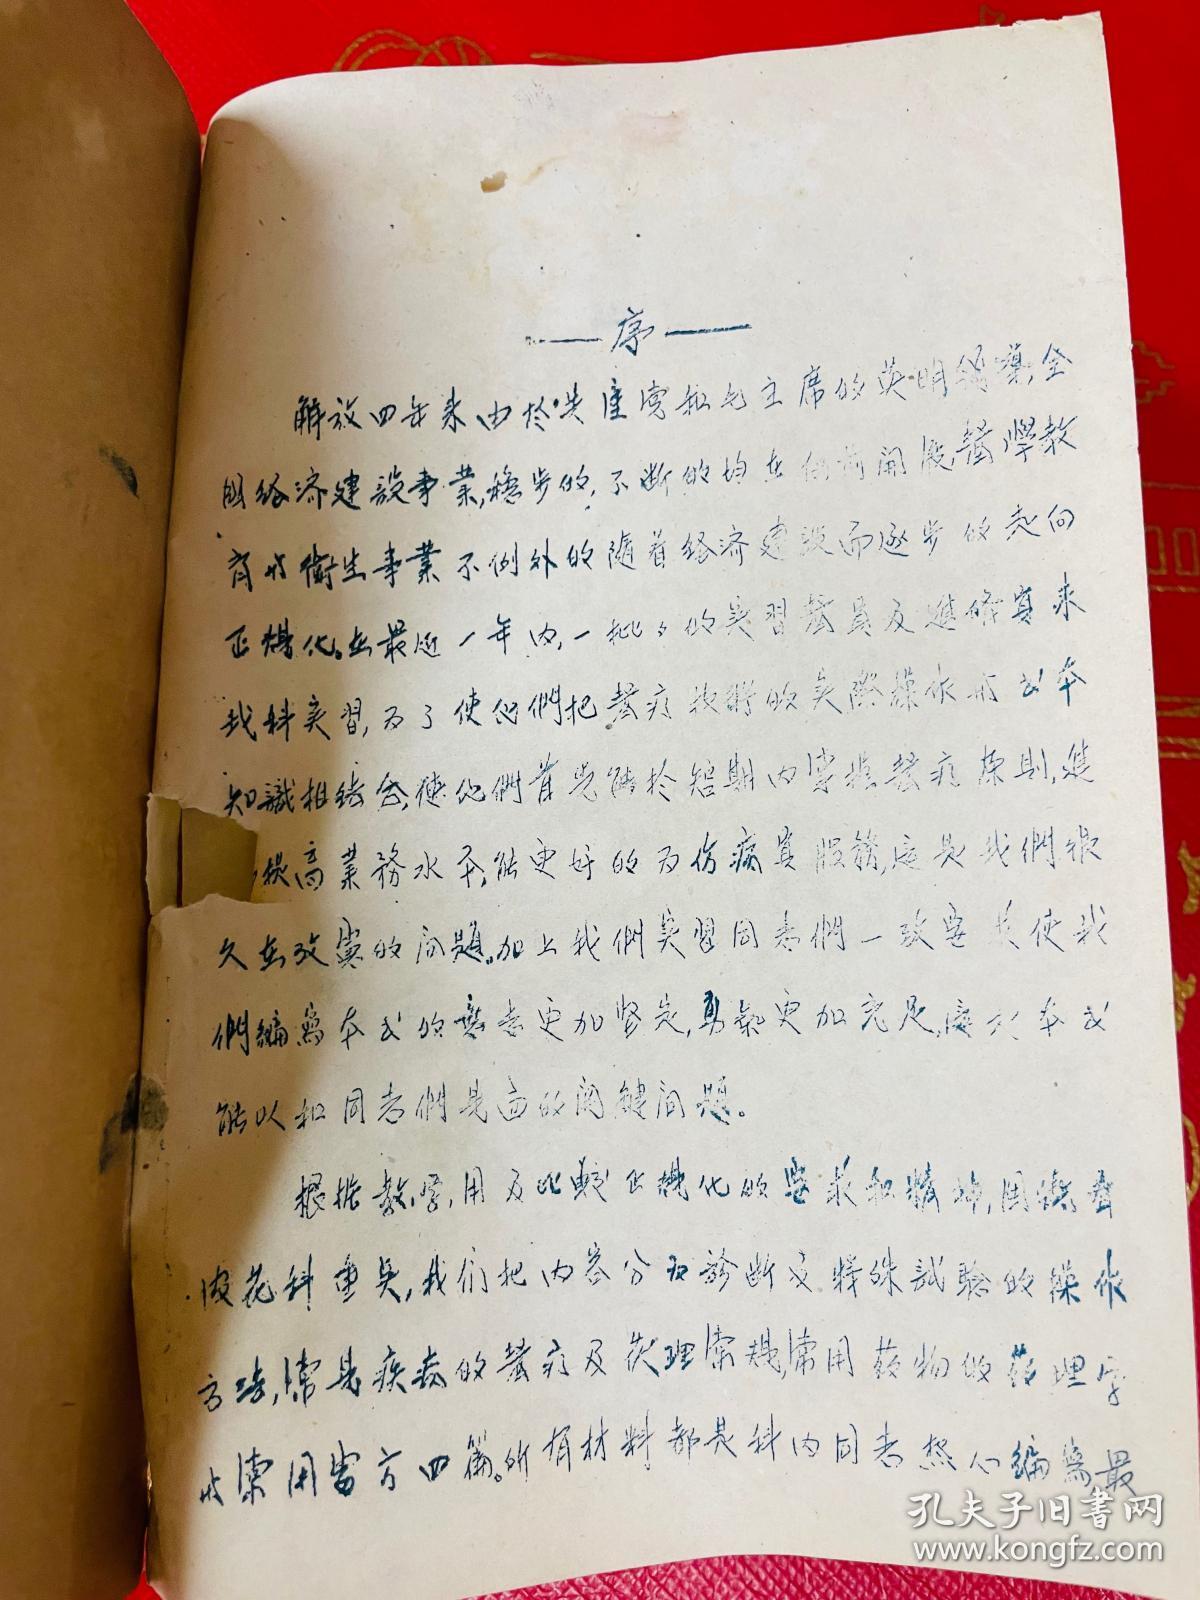 ——序——
解放四年来由於共產党和毛主席的英明領導,全
国経济建設事業,穩步的,不断的均在向前開展,醫学教
育与衛生事業不例外的隨着経济建設而逐步的走向
正規化。在最近一年內,一批々的实習醫員及進修員来
我科实習,为了使他們把醫疗技術的实際操作与书本
知識相結合,使他們首先能於短期内掌握醫疗原則,進
提高業務水平,能更好的为伤病員服務,这是我們很
久在攷慮的问題。加上我們实習同志們一致要求使我
們編寫本书的意志更加坚定,勇氣更加充足,這六本书
能以和同志們見面的関鍵问題。
根据教学,用及比較正規化的要求和精神,用
皮花科重点,我们把内容分为診断及特殊試驗的操作
方法,常見疾病的醫疗及处理常規,常用药物的药理学
与常用當方四篇。所有材料都是科内同志热心編寫,最
孔夫子旧书网
www.kongfz.com